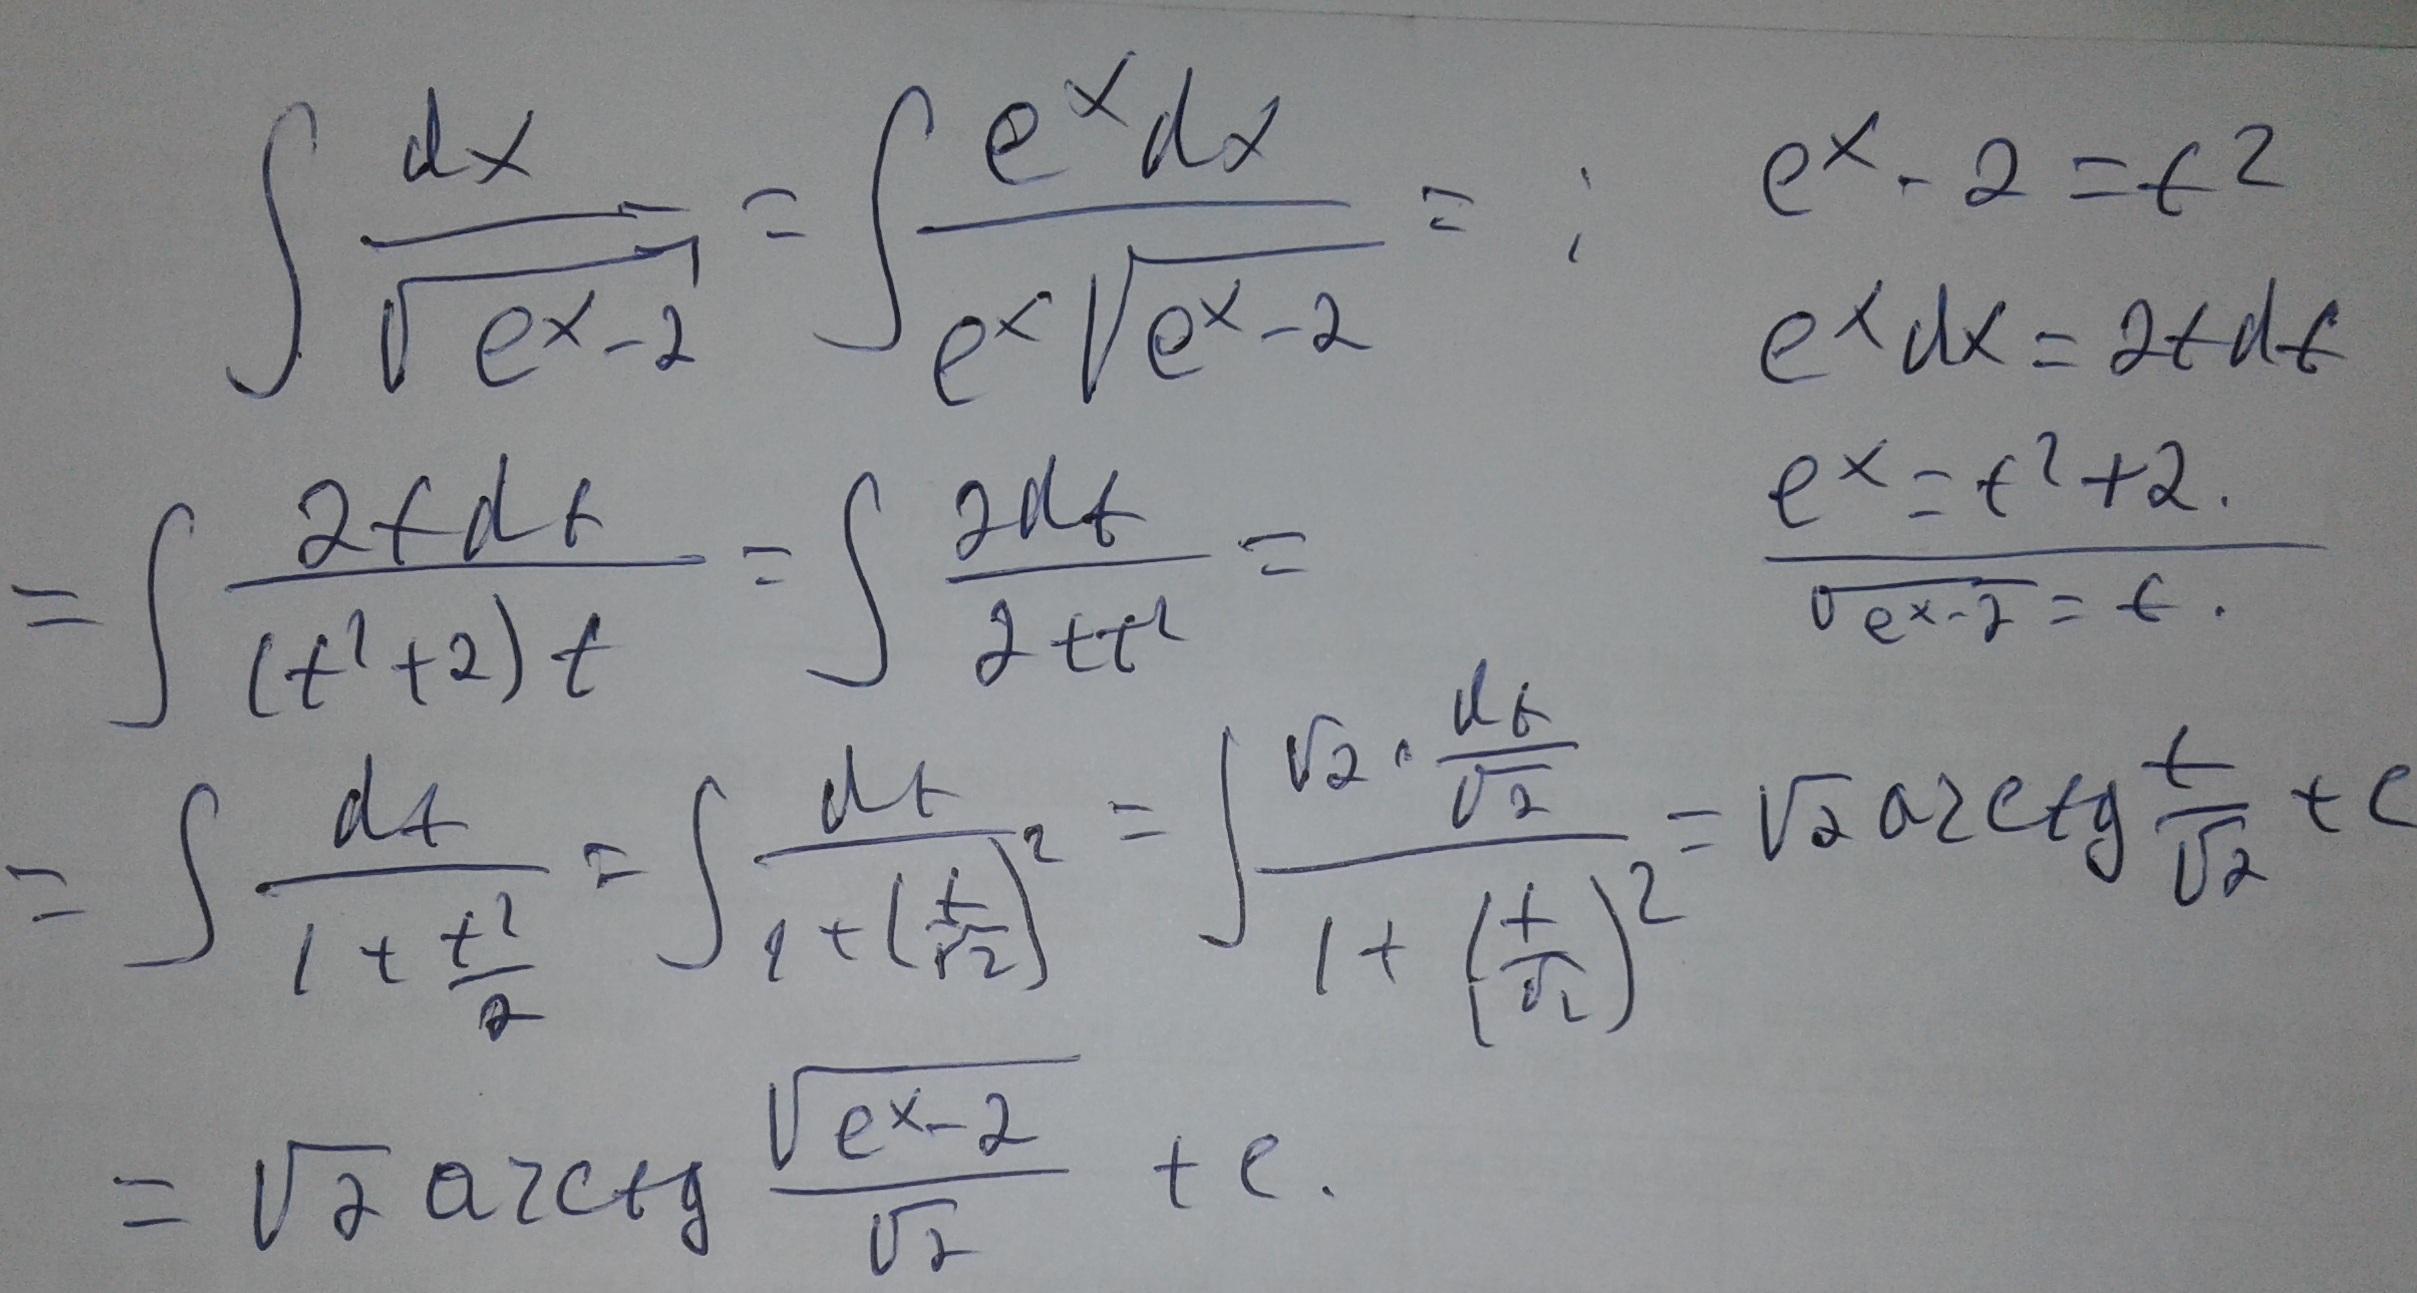 ∫ dx/√(eˣ-2) = ∫ eˣdx/(eˣ√(eˣ-2)) = ; eˣ-2=t²
eˣdx=2tdt
eˣ=t²+2.
√(eˣ-2)=t.
= ∫ 2tdt/((t²+2)t) = ∫ 2dt/(2+t²) =
= ∫ dt/(1+t²/2) = ∫ dt/(1+(t/√2)²) = ∫ (√2·dt/√2)/(1+(t/√2)²) = √2 arctg t/√2 +c
= √2 arctg √(eˣ-2)/√2 +c.